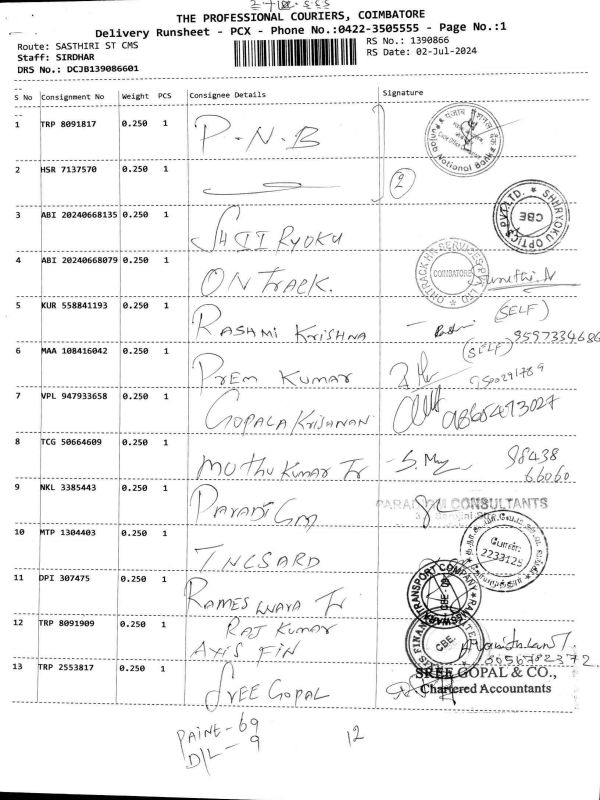 THE PROFESSIONAL COURIERS, COIMBATORE
Delivery Runsheet - PCX - Phone No.:0422-3505555 - Page No.:1
Route: SASTHIRI ST CMS
RS No.: 1390866
Staff: SIRDHAR
RS Date: 02-Jul-2024
DRS No.: DCJB139086601
S No Consignment No Weight PCS Consignee Details Signature
1 TRP 8091817 0.250 1 P-N-B
National Bank
2 HSR 7137570 0.250 1
2
3 ABI 20240668135 0.250 1 SHIIRYOKU
SHIIRYOKU OPTICS PVT.LTD. CBE
4 ABI 20240668079 0.250 1 ONTrack.
ONTRACK HR SERVICES COIMBATORE
5 KUR 558841193 0.250 1 RASHMI KRISHNA
(SELF)
9597334686
6 MAA 108416042 0.250 1 PREM KUMAR
(SELF)
7 VPL 947933658 0.250 1 GOPALA KRISHNAN
8 TCG 50664609 0.250 1 MUTHU KUMAR Tr
98438
66060
9 NKL 3385443 0.250 1
CONSULTANTS
10 MTP 1304403 0.250 1 TNCSARD
2233125
11 DPI 307475 0.250 1 RAMESWARA Tr
TRANSPORT COMPANY
12 TRP 8091909 0.250 1 RAJ KUMAR
AXIS FIN
CBE.
8056782372.
13 TRP 2553817 0.250 1 SREE GOPAL
SREE GOPAL & CO.,
Chartered Accountants
PAINE-69
D/L-9
12